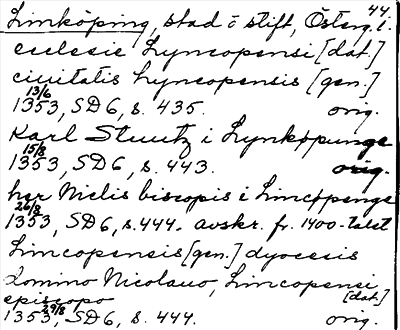 44.
Linköping, stad o stift, Österg. l.
ecclesie Lyncopensi [dat.]
ciuitatis lyncopensis [gen.]
13/6
1353, SD 6, s. 435. orig.
Karl Stuutz i Lynköpunge
15/8
1353, SD 6, s. 443. orig.
her Nielis biscopis i Limcöpunge
26/8
1353, SD 6, s. 444. avskr. fr. 1400-talet
Limcopensis [gen.] dyocesis
Domino Nicolauo, Limcopensi
episcopo [dat.]
29/8
1353, SD 6, s. 444. orig.